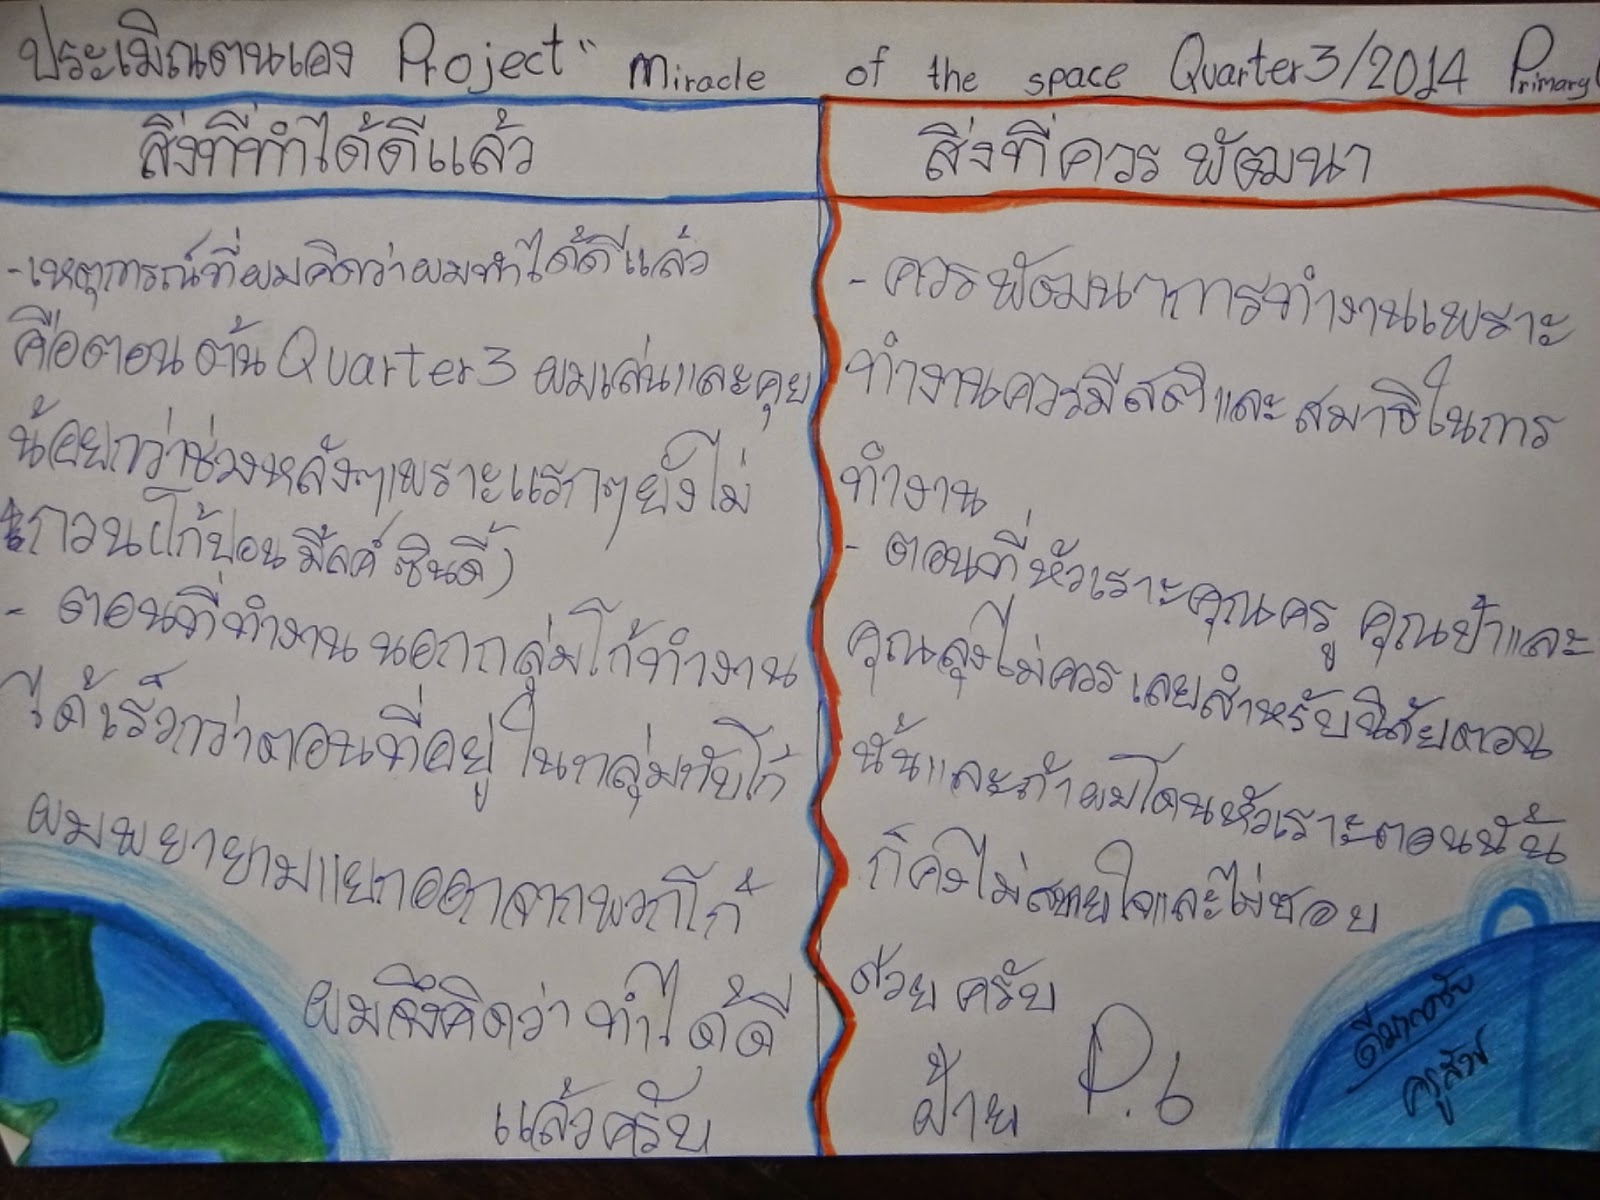 ประเมินตนเอง Project " Miracle of the space Quarter3/2014 Primary
สิ่งที่ทำได้ดีแล้ว
-เหตุการณ์ที่ผมคิดว่าผมทำได้ดีแล้ว
คือตอนต้น Quarter3 ผมเล่นและคุย
น้อยกว่าช่วงหลังๆเพราะแรกๆยังไม่
กวน(โก้ปอนมิ้ลค์ซินดี้)
- ตอนที่ทำงานนอกกลุ่มโก้ทำงาน
ได้เร็วกว่าตอนที่อยู่ในกลุ่มกับโก้
ผมพยายามแยกออกจากพวกโก้
ผมจึงคิดว่าทำได้ดี
แล้วครับ
สิ่งที่ควรพัฒนา
- ควรพัฒนาการทำงานเพราะ
ทำงานควรมีสติและสมาธิในการ
ทำงาน
- ตอนที่หัวเราะคุณครู คุณป้าและ
คุณลุงไม่ควรเลยสำหรับนิสัยตอน
นั้นและถ้าผมโดนหัวเราะตอนนั้น
ก็คงไม่สบายใจและไม่ชอบ
ด้วยครับ
ฝ้าย P.6
ดีมากครับ